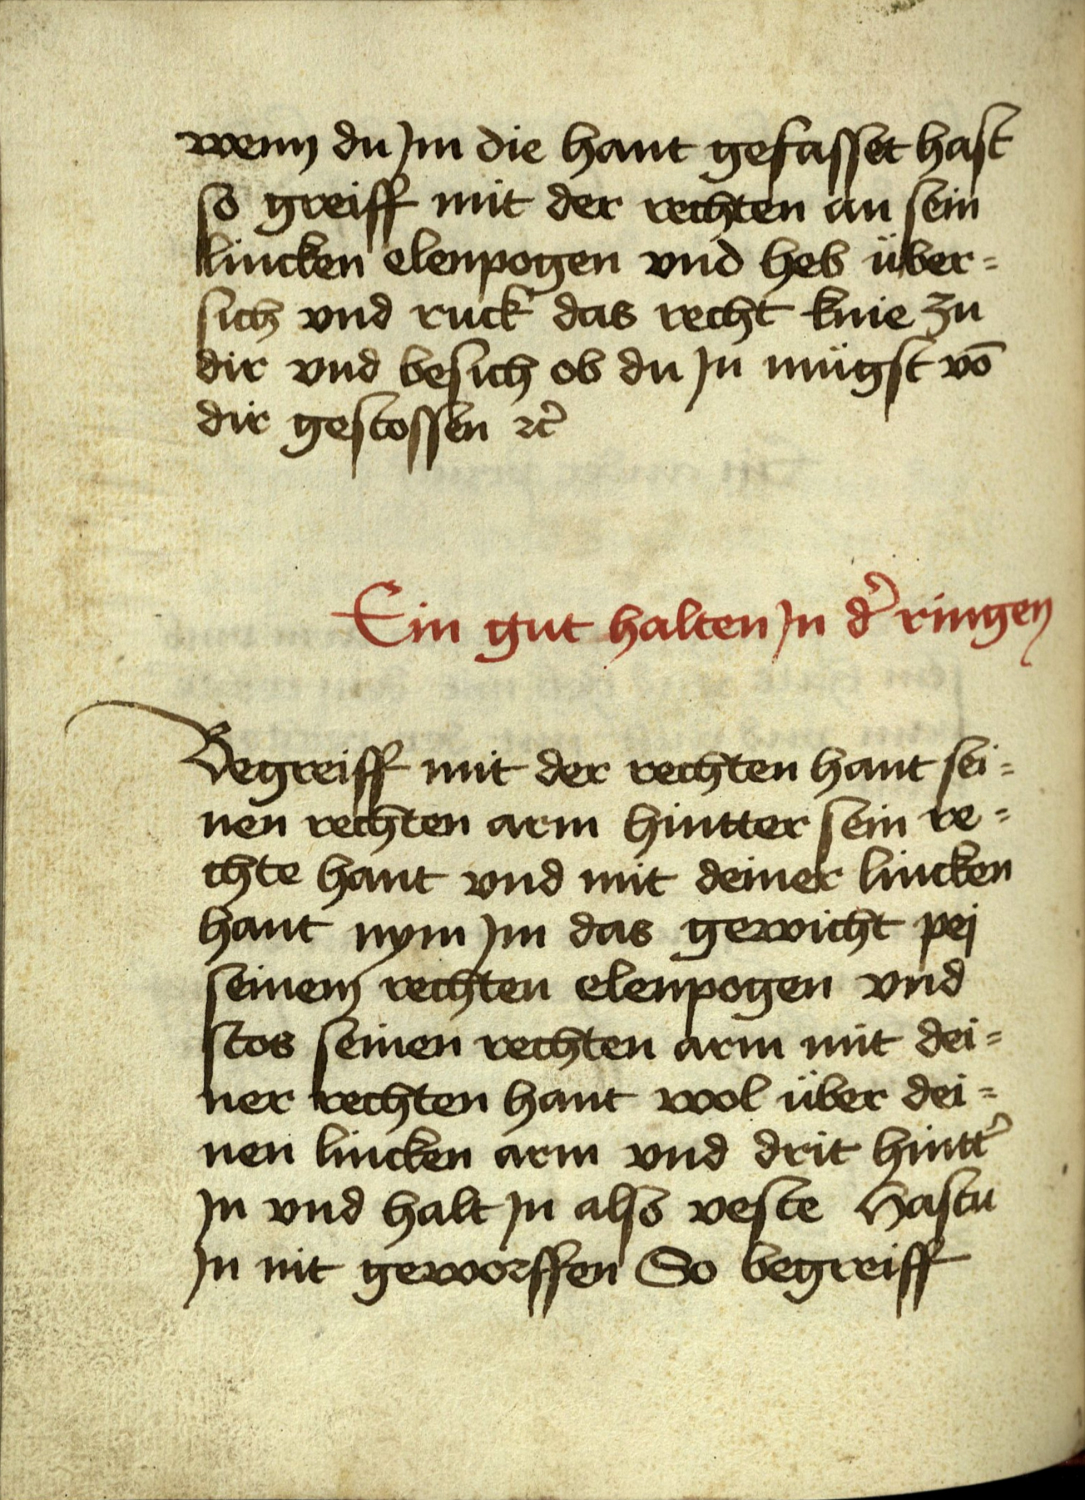 wenn du Jm die hant gefasset hast
so greiff mit der rechten an sein
lincken elenpogen vnd heb über=
sich vnd ruck das recht knie zu
dir vnd besich ob du Jn mügst vō
dir gestossen ꝛc̄
Ein gut halten Jn d̓ ringen
Begreiff mit der rechten hant sei=
nen rechten arm hintter sein re=
chte hant vnd mit deiner lincken
hant nym Jm das gewicht pej
seinem rechten elenpogen vnd
stos seinen rechten arm mit dei=
ner rechten hant wol über dei=
nen lincken arm vnd drit hintt̓
Jn vnd halt Jn also veste Hastu
Jn nit geworffen So begreiff